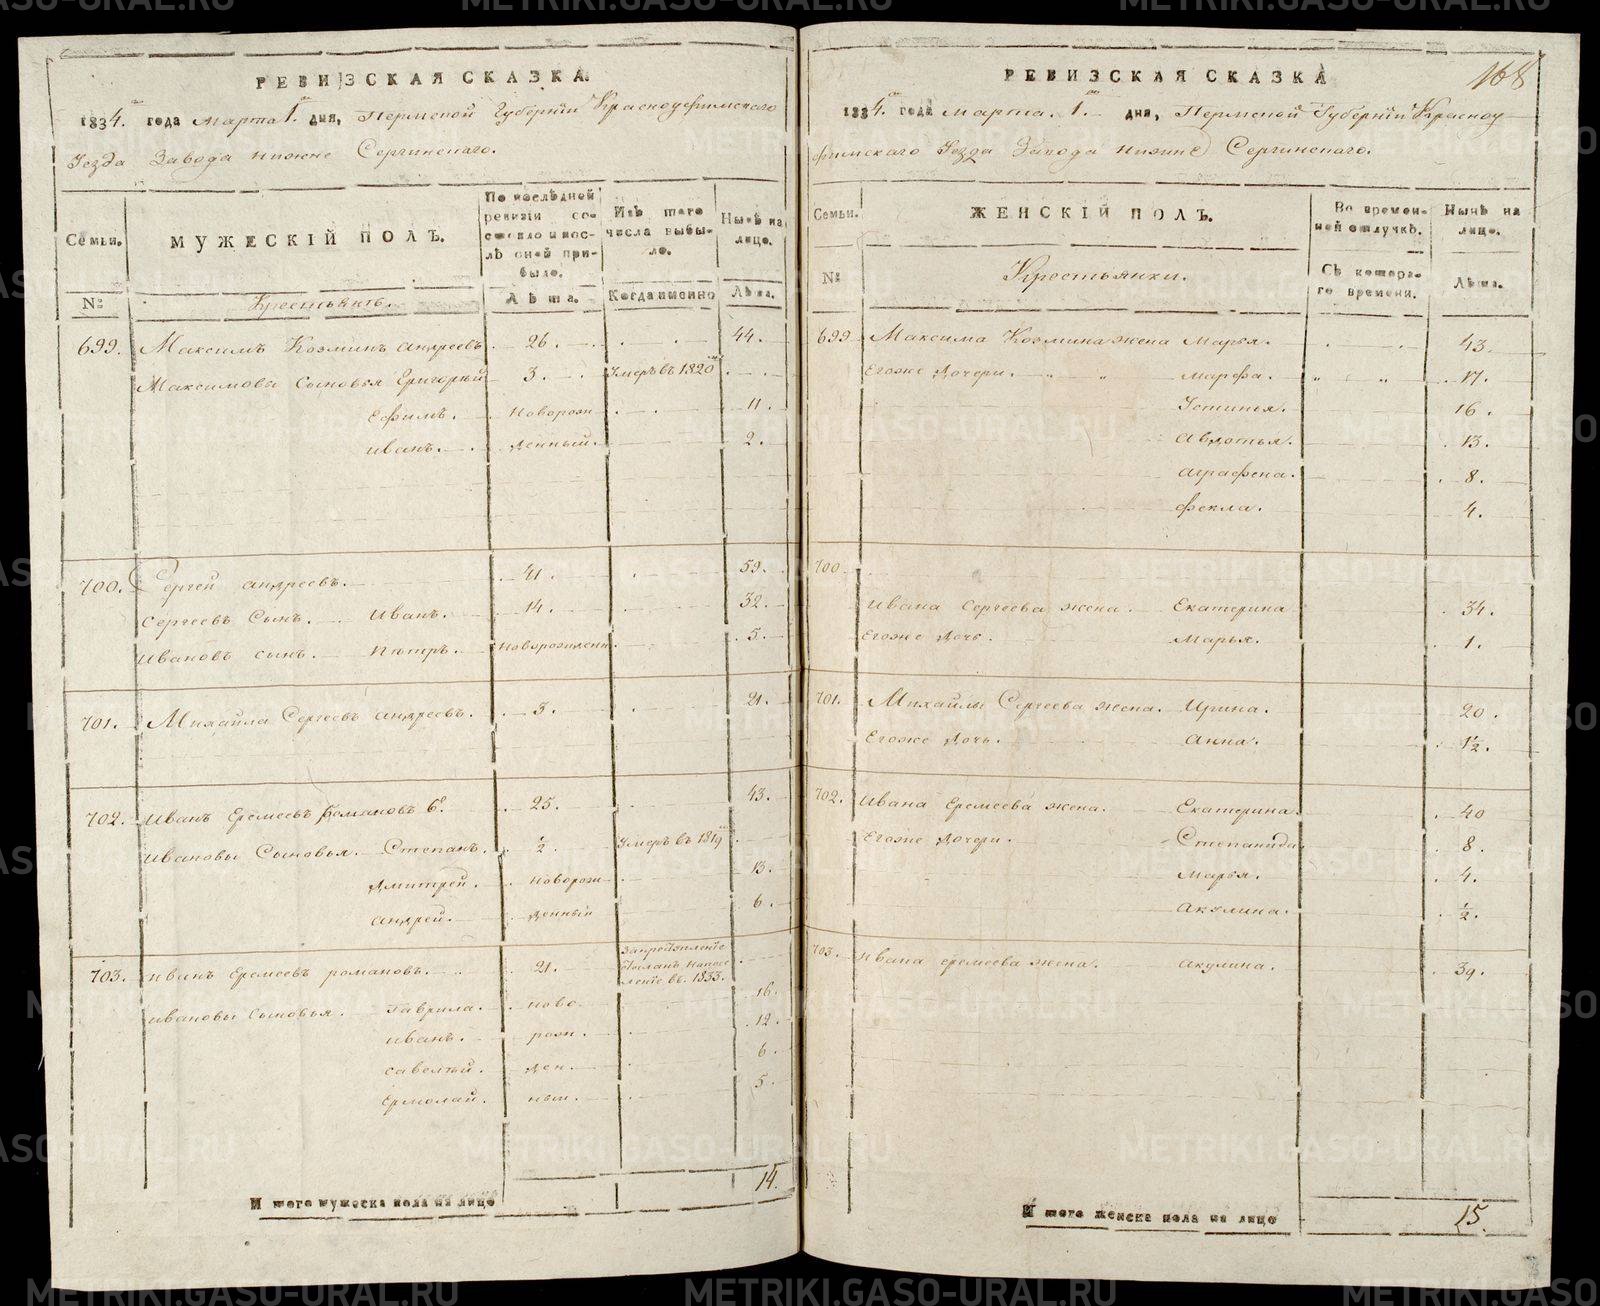 РЕВИЗСКАЯ СКАЗКА.
1834. года Марта 1. дня, Пермской Губернiи Красноуфимского
Уезда Завода Нижне Сергинскаго.
Семьи.
МУЖЕСКIЙ ПОЛЪ.
По последней ревизiи состояло и послѣ оной прибыло.
Изъ того числа выбыло.
Нынѣ на лицо.
№
Крестьянъ.
Лѣта.
Когда именно
Лѣта.
699. Максимъ Козминъ Андреевъ. 26. 44.
Максимовы Сыновья Григорiй 3. Умеръ въ 1820
Ефимъ. Новорож 11.
Иванъ. денный. 2.
700. Сергей Андреевъ. 41. 59.
Сергеевъ Сынъ. Иванъ. 14. 32.
Ивановъ сынъ. Петръ. Новорожденн. 5.
701. Михайла Сергеевъ Андреевъ. 3. 21.
702. Иванъ Еремеевъ Романовъ бо. 25. 43.
Ивановы Сыновья. Степанъ. ½. Умеръ въ 1819
Дмитрей. новорож 13.
Андрей. денный 6.
703. Иванъ Еремеевъ романовъ. 21. посланъ на поселенiе въ 1833.
Ивановы Сыновья. Гаврила. ново. 16.
Иванъ. рож. 12.
Савелiй. ден. 6.
Ермолай. ныи. 5.
И того мужеска пола на лицо 14.
168
РЕВИЗСКАЯ СКАЗКА
1834. года Марта. 1. дня, Пермской Губернiи Красноу
фимского Уезда Завода Нижне Сергинскаго.
Семьи.
ЖЕНСКIЙ ПОЛЪ.
Во временной отлучкѣ.
Нынѣ на лицо.
№
Крестьянки.
Съ котораго времени.
Лѣта.
699 Максима Козмина жена Марья. 43.
Егоже Дочери. Марфа. 17.
Устинья. 16.
Авдотья. 13.
Аграфена. 8.
Фекла. 4.
700.
Ивана Сергеева жена. Екатерина 34.
Егоже Дочь. Марья. 1.
701. Михайлы Сергеева жена. Ирина. 20.
Егоже Дочь. Анна. 1½.
702. Ивана Еремеева жена. Екатерина. 40
Егоже Дочери. Степанида. 8.
Марья. 4.
Акулина. ½.
703. Ивана еремеева жена. Акулина. 39.
И того женска пола на лицо 15.
METRIKI.GASO-URAL.RU